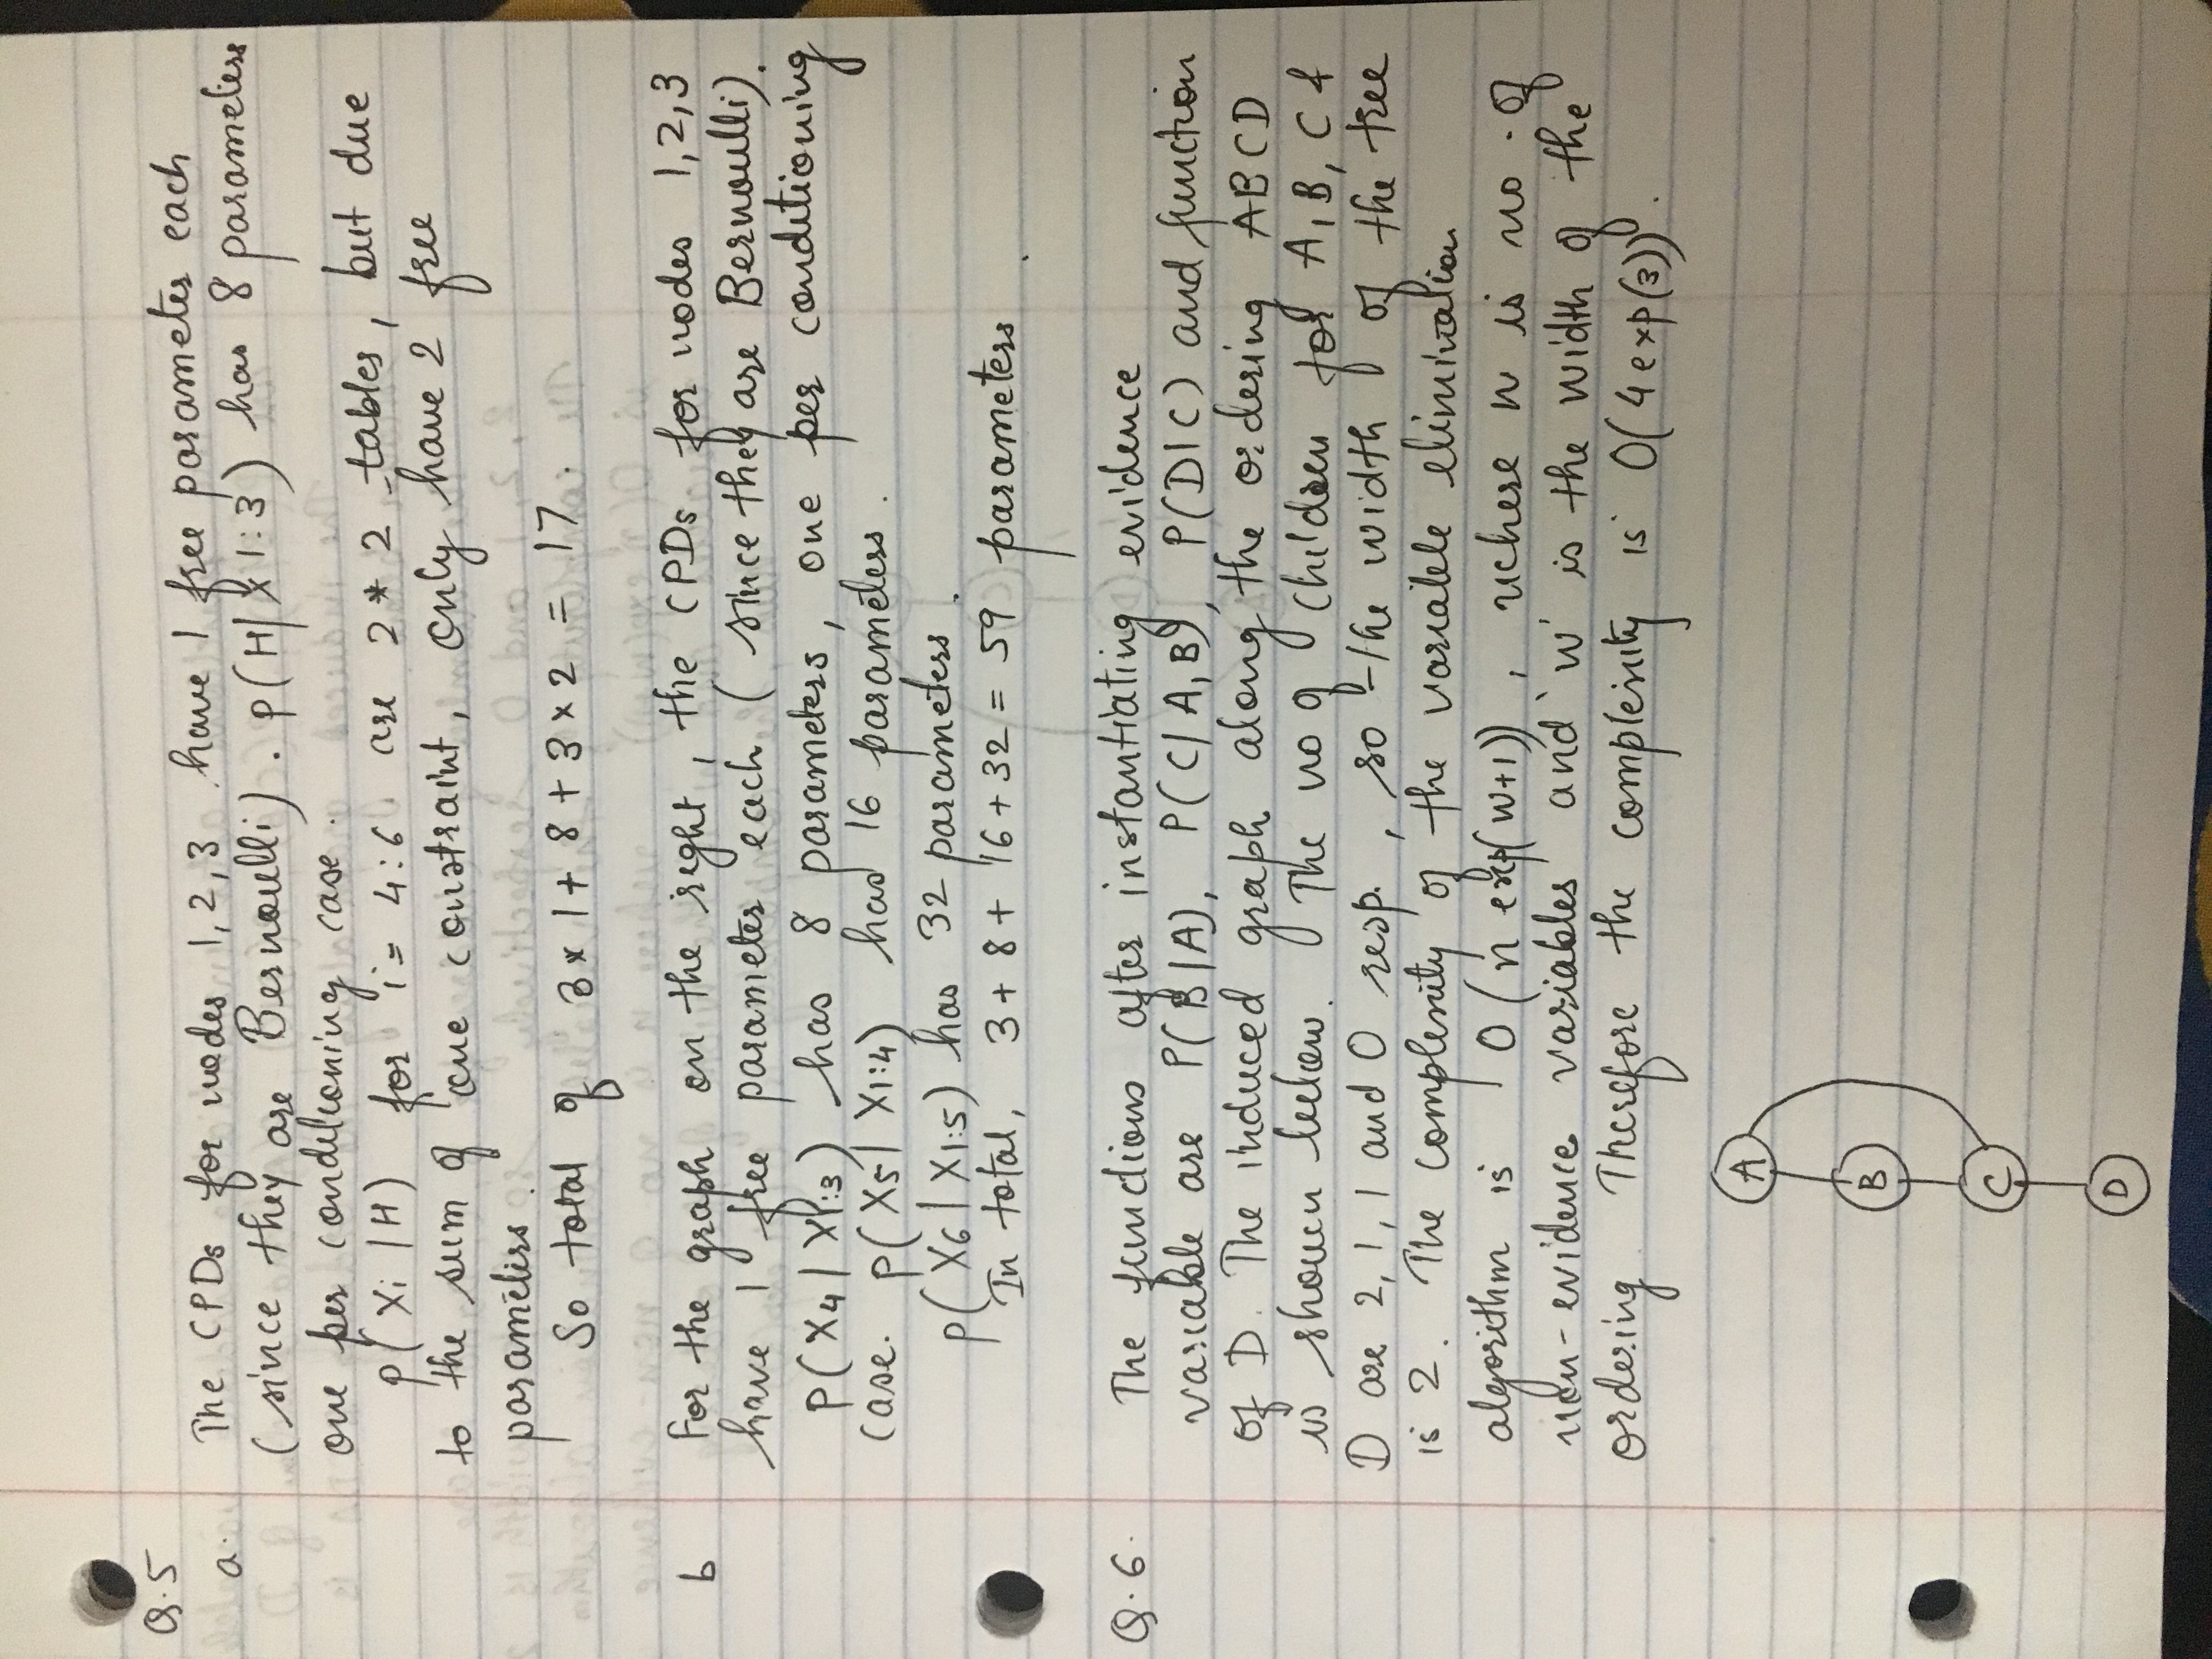 Q.5
a. The CPDs for nodes 1,2,3 have 1 free parameter each
(since they are Bernoulli). p(H|X1:3) has 8 parameters
one per conditioning case.
p(Xi|H) for i = 4:6 are 2*2 tables, but due
to the sum of one constraint, only have 2 free
parameters.
So total of 3×1+8+3×2 = 17.
b For the graph on the right, the CPDs for nodes 1,2,3
have 1 free parameter each (since they are Bernoulli).
P(X4|X1:3) has 8 parameters, one per conditioning
case. p(X5|X1:4) has 16 parameters.
p(X6|X1:5) has 32 parameters.
In total, 3+8+16+32 = 59 parameters.
Q.6. The functions after instantiating evidence
variable are P(B|A), P(C|A,B), P(D|C) and function
of D. The induced graph along the ordering ABCD
is shown below. The no of children for A, B, C &
D are 2,1,1 and 0 resp., so the width of the tree
is 2. The complexity of the variable elimination
algorithm is O(n exp(w+1)), where n is no. of
non-evidence variables and 'w' is the width of the
ordering. Therefore the complexity is O(4 exp(3)).
A
B
C
D